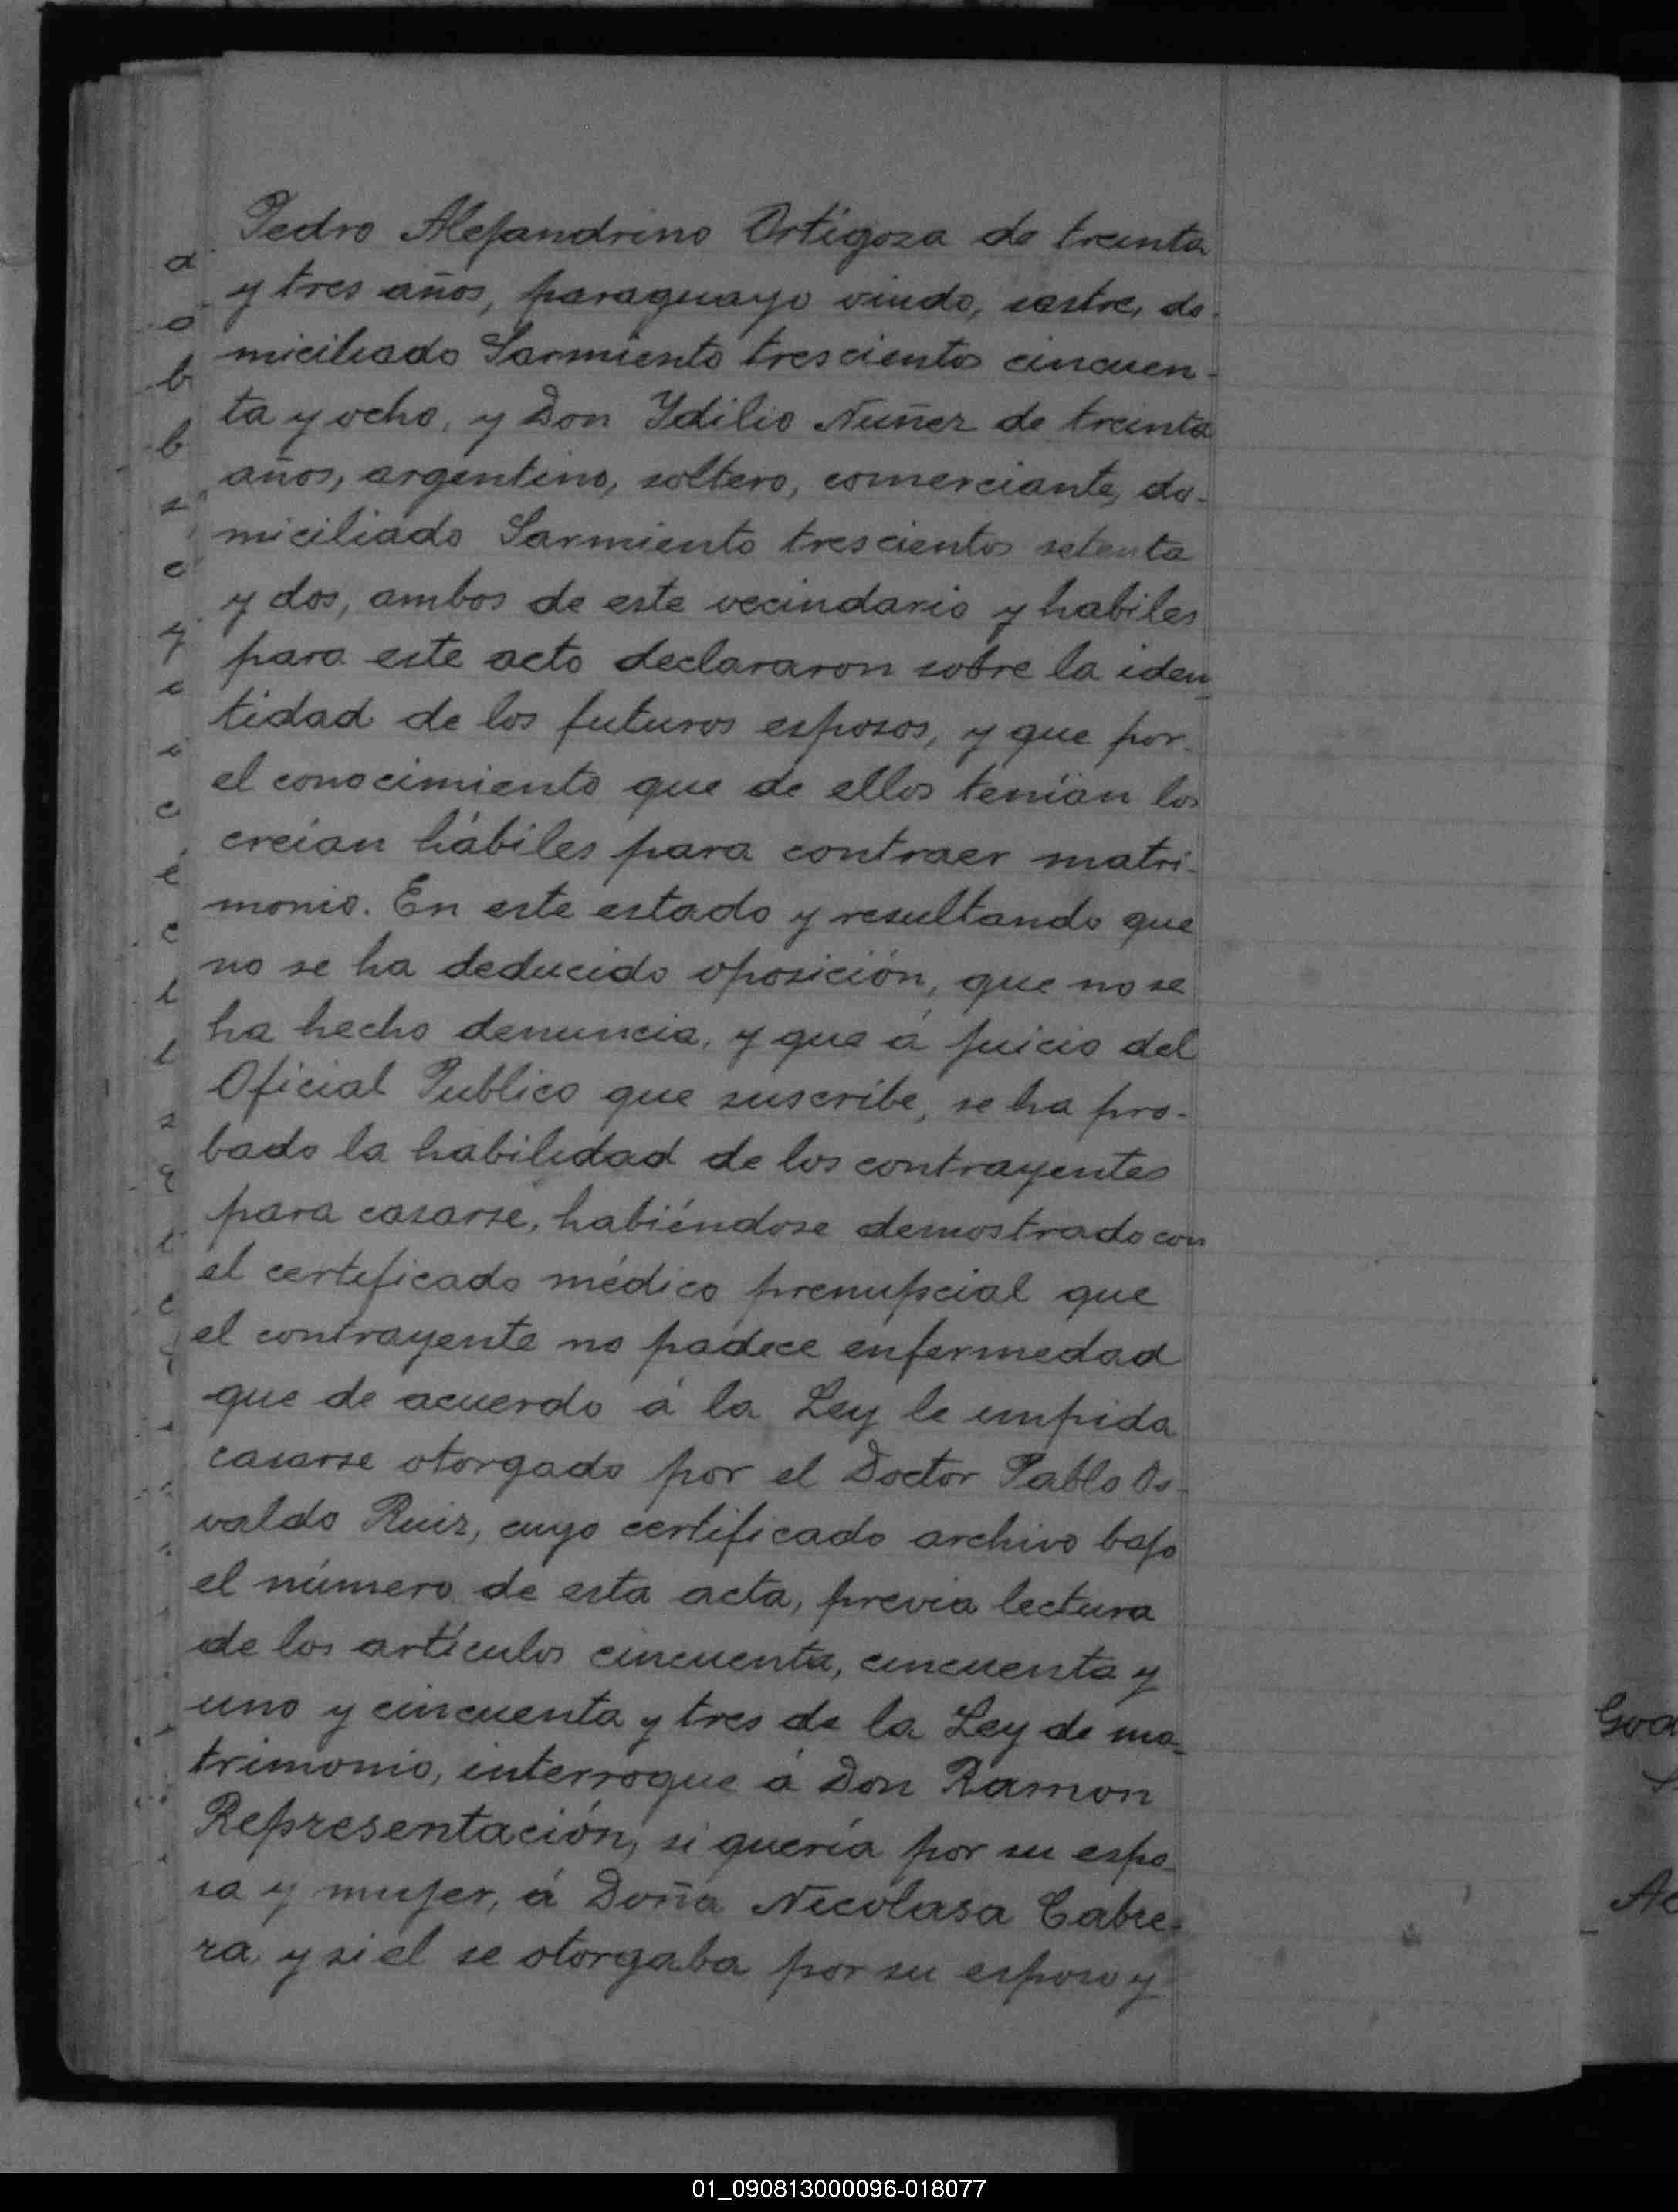 Pedro Alejandrino Ortigoza de treinta
y tres años, paraguayo viudo, sastre, do-
miciliado Sarmiento trescientos cincuen-
ta y ocho, y Don Ydilio Nuñez de treinta
años, argentino, soltero, comerciante, do-
miciliado Sarmiento trescientos setenta
y dos, ambos de este vecindario y habiles
para este acto declararon sobre la iden-
tidad de los futuros esposos, y que por
el conocimiento que de ellos tenían los
creían hábiles para contraer matri-
monio. En este estado y resultando que
no se ha deducido oposición, que no se
ha hecho denuncia, y que á juicio del
Oficial Publico que suscribe, se ha pro-
bado la habilidad de los contrayentes
para casarse, habiéndose demostrado con
el certificado médico prenupscial que
el contrayente no padece enfermedad
que de acuerdo á la Ley le impida
casarse otorgado por el Doctor Pablo Os-
valdo Ruiz, cuyo certificado archivo bajo
el número de esta acta, previa lectura
de los artículos cincuenta, cincuenta y
uno y cincuenta y tres de la Ley de ma-
trimonio, interroque á Don Ramon
Representación, si quería por su espo-
sa y mujer, á Doña Nicolasa Cabre-
ra, y si el se otorgaba por su esposo y
01_090813000096-018077